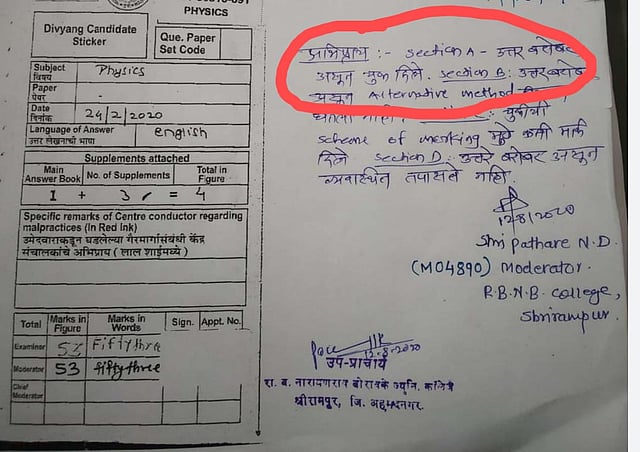 PHYSICS
Divyang Candidate
Sticker
Que. Paper
Set Code
Subject
विषय
Physics
Paper
पेपर
-
Date
दिनांक
24/2/2020
Language of Answer
उत्तर लेखनाची भाषा
english
Supplements attached
Main
Answer Book
No. of Supplements
Total in
Figure
1 + 3 = 4
Specific remarks of Centre conductor regarding
malpractices (In Red Ink)
उमेदवाराकडून घडलेल्या गैरमार्गासंबंधी केंद्र
संचालकांचे अभिप्राय ( लाल शाईमध्ये )
Total
Marks in
Figure
Marks in
Words
Sign.
Appt. No.
Examiner
53
Fiftythree
Moderator
53
fiftythree
Chief
Moderator
अभिप्राय :- section A - उत्तर बरोबर
असून चुक दिले. section B: उत्तर बरोबर
असून Alternative method
scheme of marking मुळे कमी मार्क
दिले section D: उत्तरे बरोबर असून
व्यवस्थित तपासले नाही.
12-8/2020
Shri Pathare N.D.
(M04890) Moderator.
R.B.N.B. College,
Shrirampur.
12-8-2020
उप-प्राचार्य
रा. ब. नारायणराव बोरावके ज्युनि. कॉलेज
श्रीरामपूर, जि. अहमदनगर.